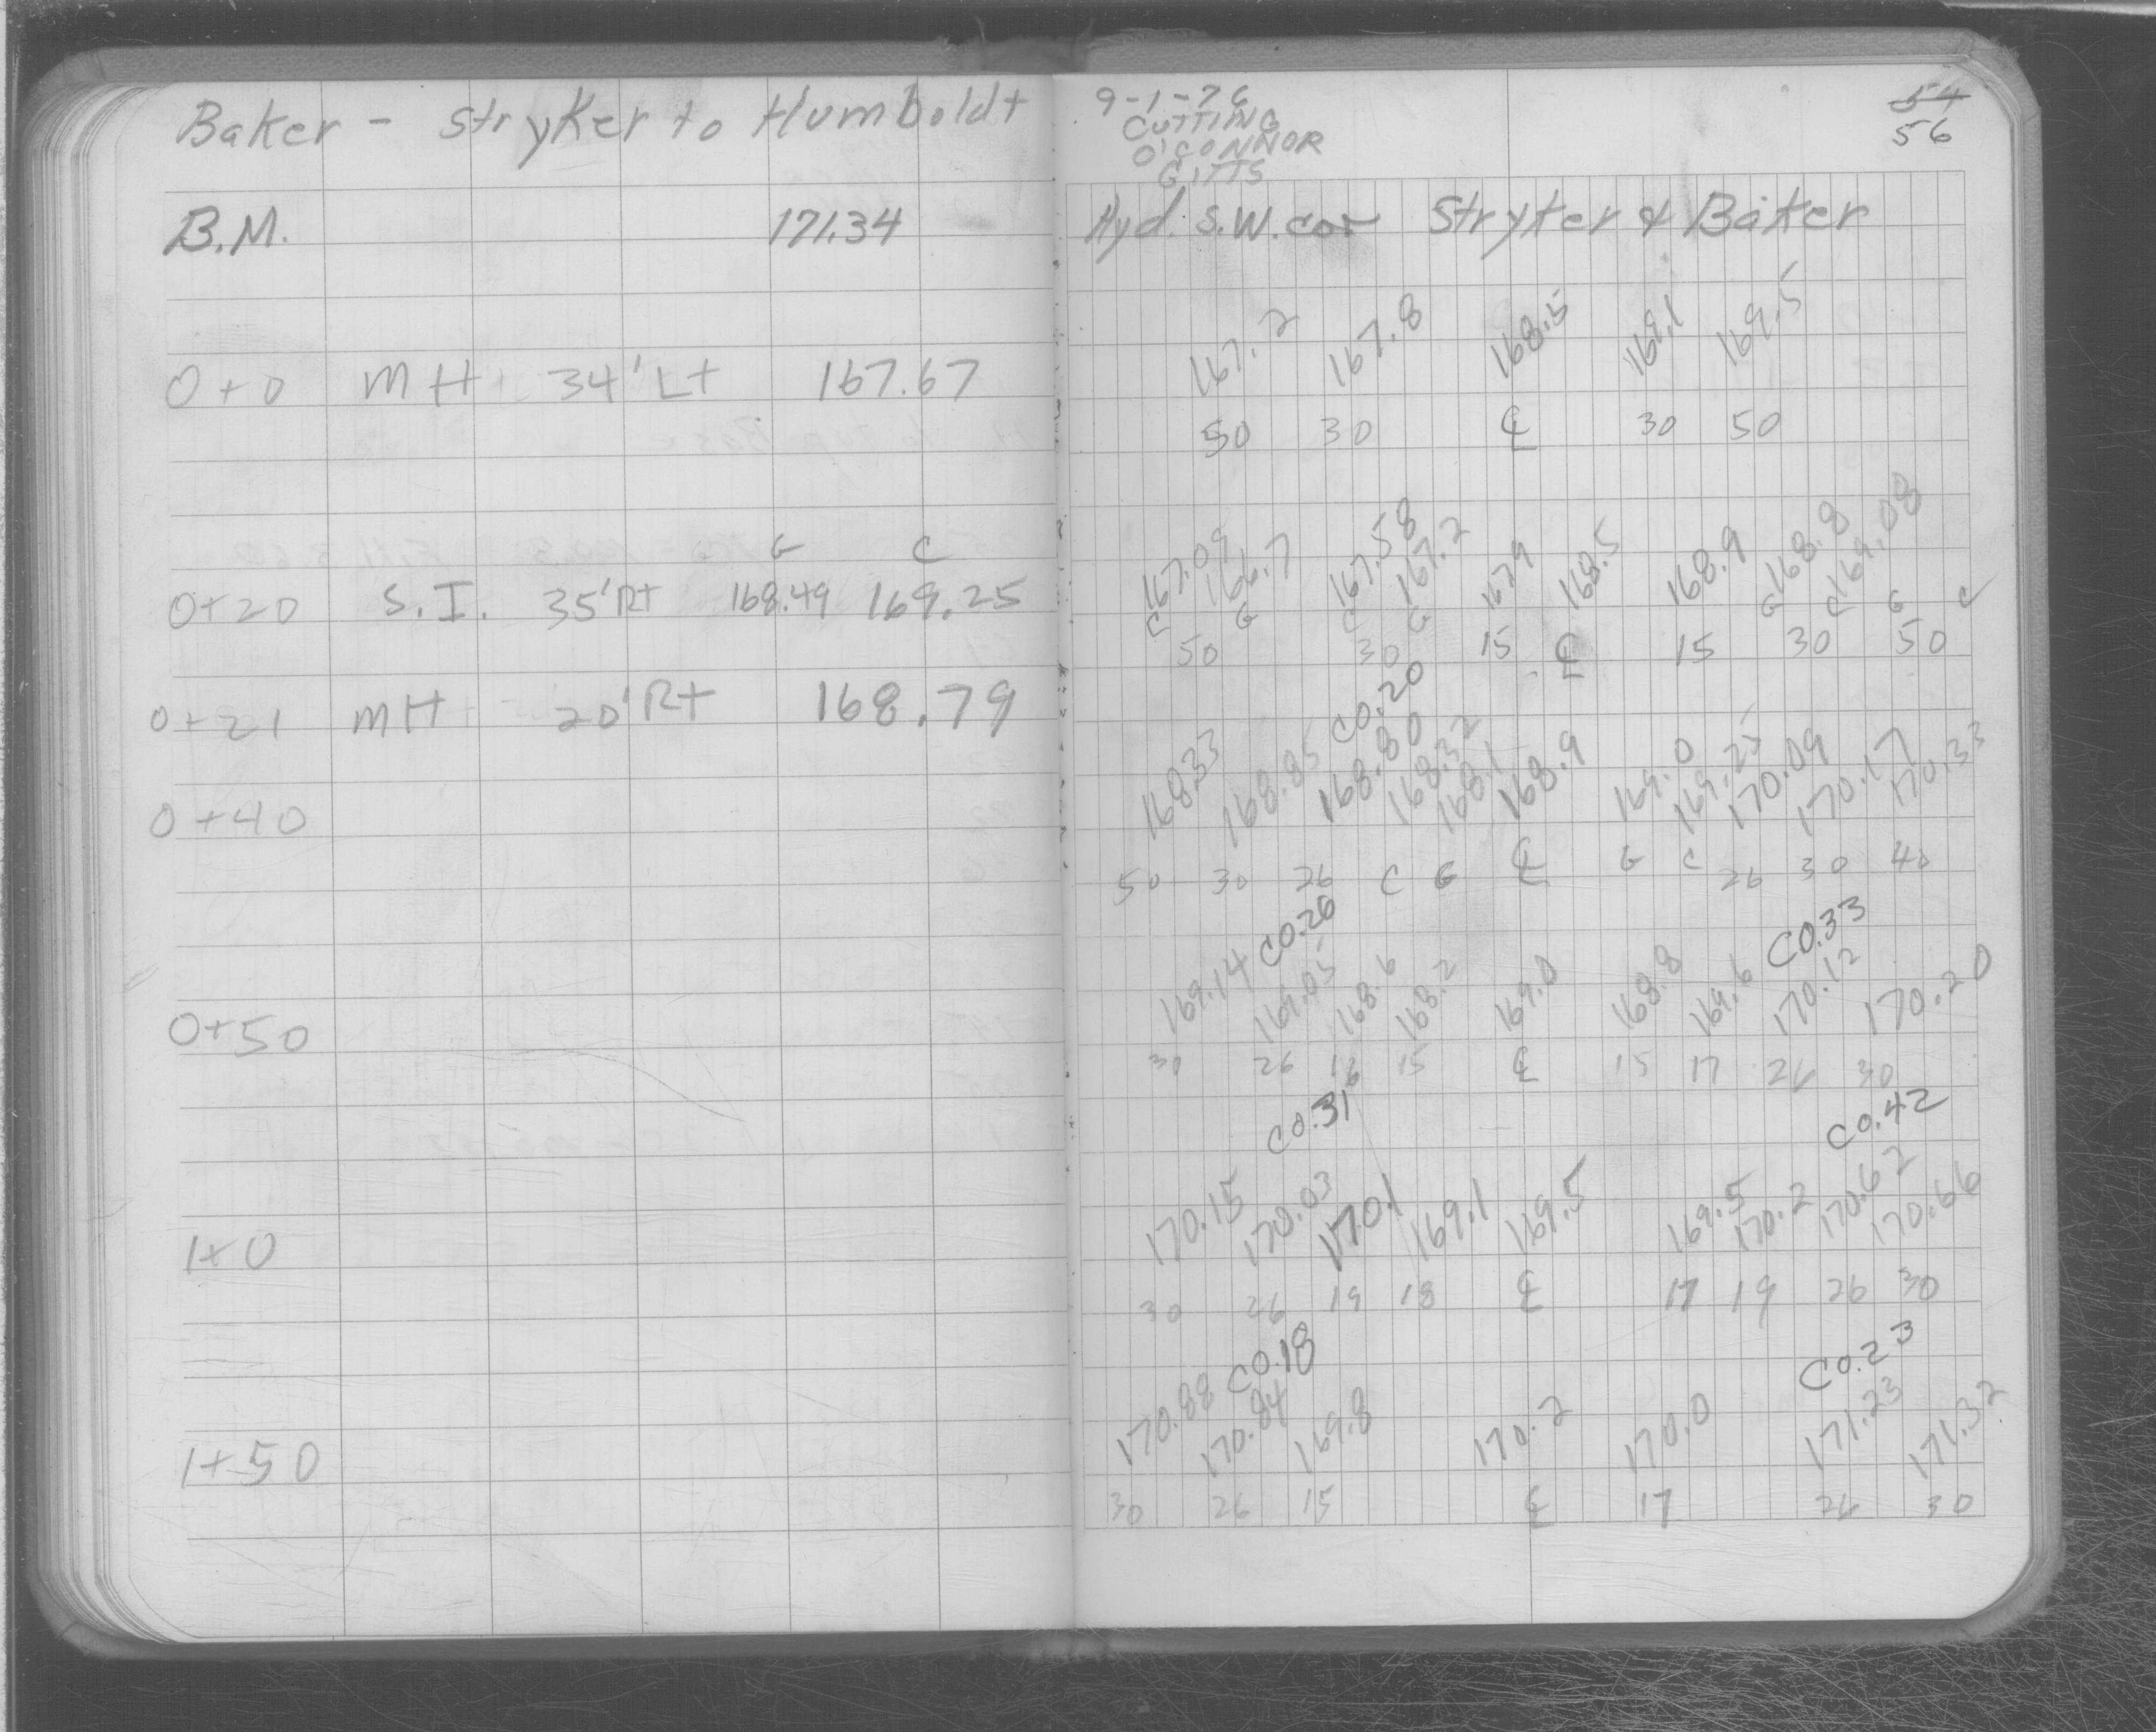 Baker - Stryker to Humboldt
B.M. 171.34
0+0 MH 34' Lt 167.67
G C
0+20 S.I. 35' Rt 168.49 169.25
0+21 MH 20' Rt 168.79
0+40
0+50
1+0
1+50
9-1-76
CUTTING
O'CONNOR
GITTS
54
56
Hyd. S.W. cor Stryker & Baker
167.2 167.8 168.5 169.1 169.5
50 30 ℄ 30 50
167.09 166.7 167.58 167.2 167.9 168.5 168.9 168.8 169.08
C G C G G C G C
50 30 15 ℄ 15 30 50
C0.20
168.33 168.85 168.80 168.32 168.1 168.9 169.0 169.25 170.09 170.17 170.33
50 30 26 C G ℄ G C 26 30 40
C0.26 C0.33
169.14 169.05 168.6 168.2 169.0 168.8 169.6 170.12 170.20
30 26 16 15 ℄ 15 17 26 30
C0.31 C0.42
170.15 170.03 170.1 169.1 169.5 169.5 170.2 170.62 170.66
30 26 19 18 ℄ 17 19 26 30
C0.18 C0.23
170.88 170.84 169.8 170.2 170.0 171.23 171.32
30 26 15 ℄ 17 26 30